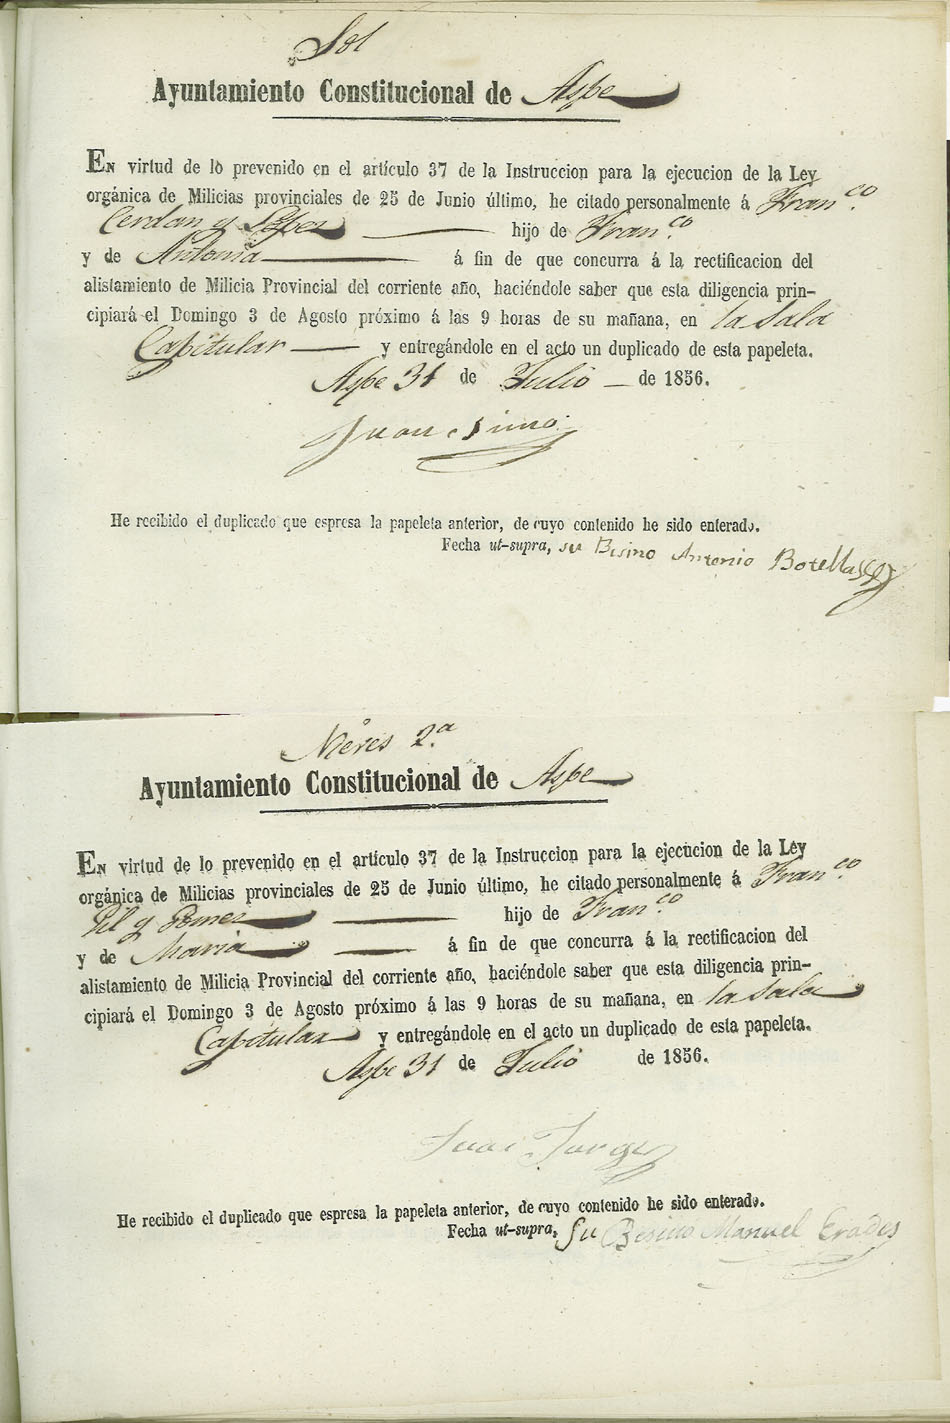 Sol
Ayuntamiento Constitucional de Aspe
EN virtud de lo prevenido en el artículo 37 de la Instruccion para la ejecucion de la Ley
orgánica de Milicias provinciales de 25 de Junio último, he citado personalmente á Franco.
Cerdan y Lopez hijo de Franco.
y de Antonia á fin de que concurra á la rectificacion del
alistamiento de Milicia Provincial del corriente año, haciéndole saber que esta diligencia prin-
cipiará el Domingo 3 de Agosto próximo á las 9 horas de su mañana, en la Sala
Capitular y entregándole en el acto un duplicado de esta papeleta.
Aspe 31 de Julio de 1856.
Juan Simo
He recibido el duplicado que espresa la papeleta anterior, de cuyo contenido he sido enterado.
Fecha ut-supra, su Besino Antonio Botella
Nieves 2.a
Ayuntamiento Constitucional de Aspe
EN virtud de lo prevenido en el artículo 37 de la Instruccion para la ejecucion de la Ley
orgánica de Milicias provinciales de 25 de Junio último, he citado personalmente á Franco.
Gil y Gomez hijo de Franco.
y de Maria á fin de que concurra á la rectificacion del
alistamiento de Milicia Provincial del corriente año, haciéndole saber que esta diligencia prin-
cipiará el Domingo 3 de Agosto próximo á las 9 horas de su mañana, en la Sala
Capitular y entregándole en el acto un duplicado de esta papeleta.
Aspe 31 de Julio de 1856.
He recibido el duplicado que espresa la papeleta anterior, de cuyo contenido he sido enterado.
Fecha ut-supra, Su Besino Manuel Erades